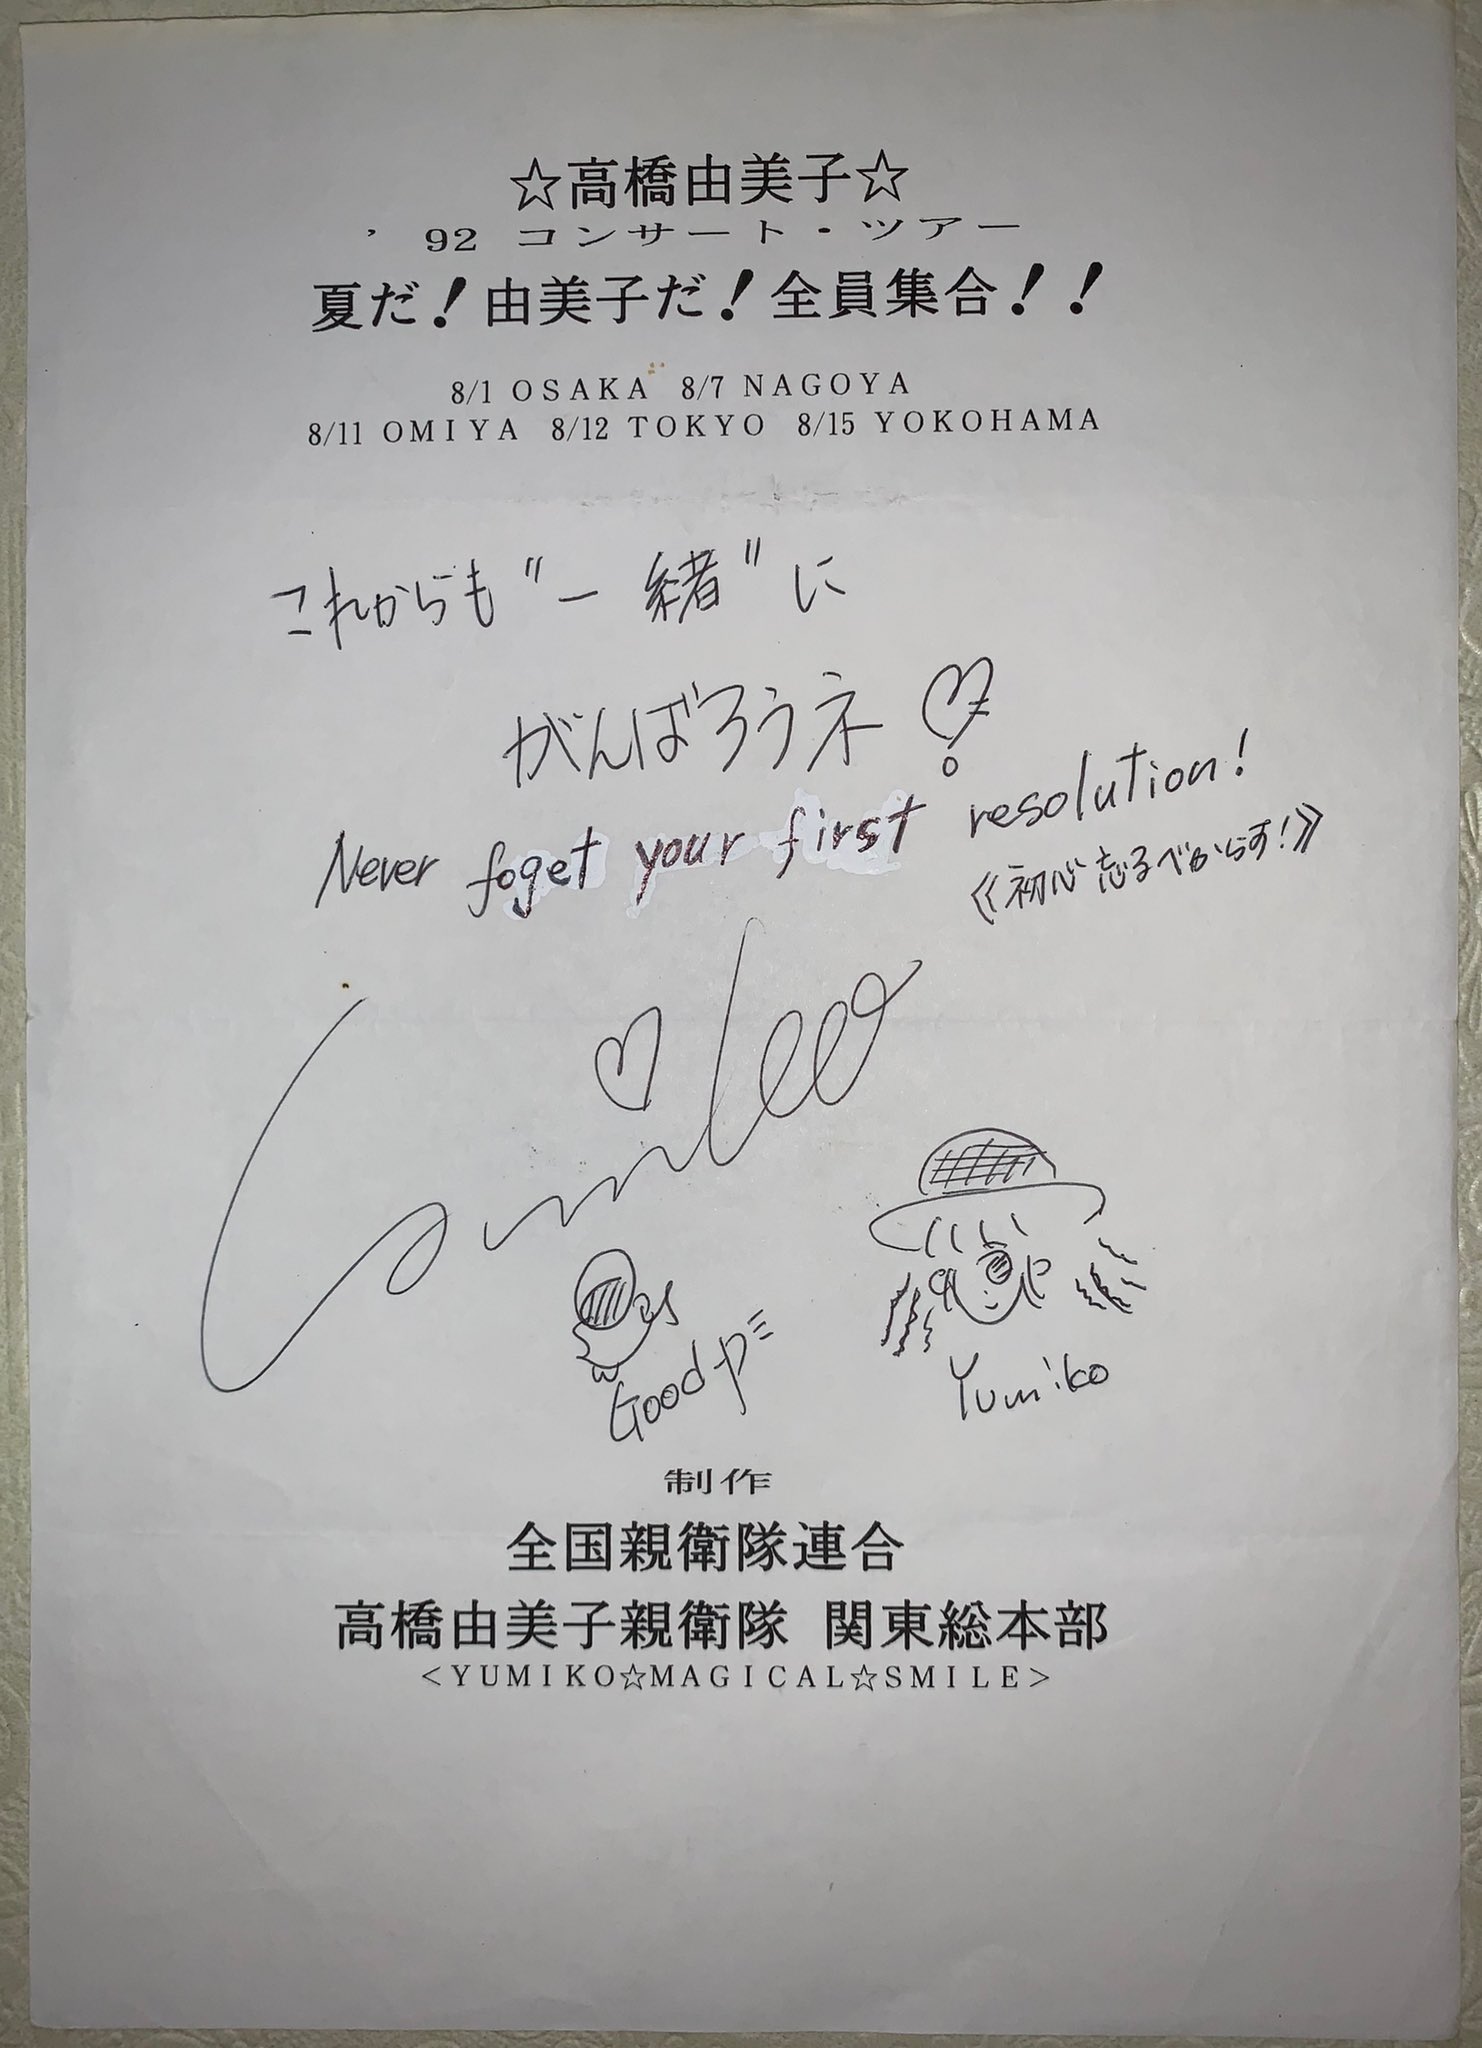 ☆高橋由美子☆
’92 コンサート・ツアー
夏だ！由美子だ！全員集合！！
8/1 OSAKA 8/7 NAGOYA
8/11 OMIYA 8/12 TOKYO 8/15 YOKOHAMA
これからも〃一緒〃に
がんばろうネ♡
Never foget your first resolution!
《初心忘るべからず!》
Goodや
Yumiko
制作
全国親衛隊連合
高橋由美子親衛隊 関東総本部
<YUMIKO☆MAGICAL☆SMILE>